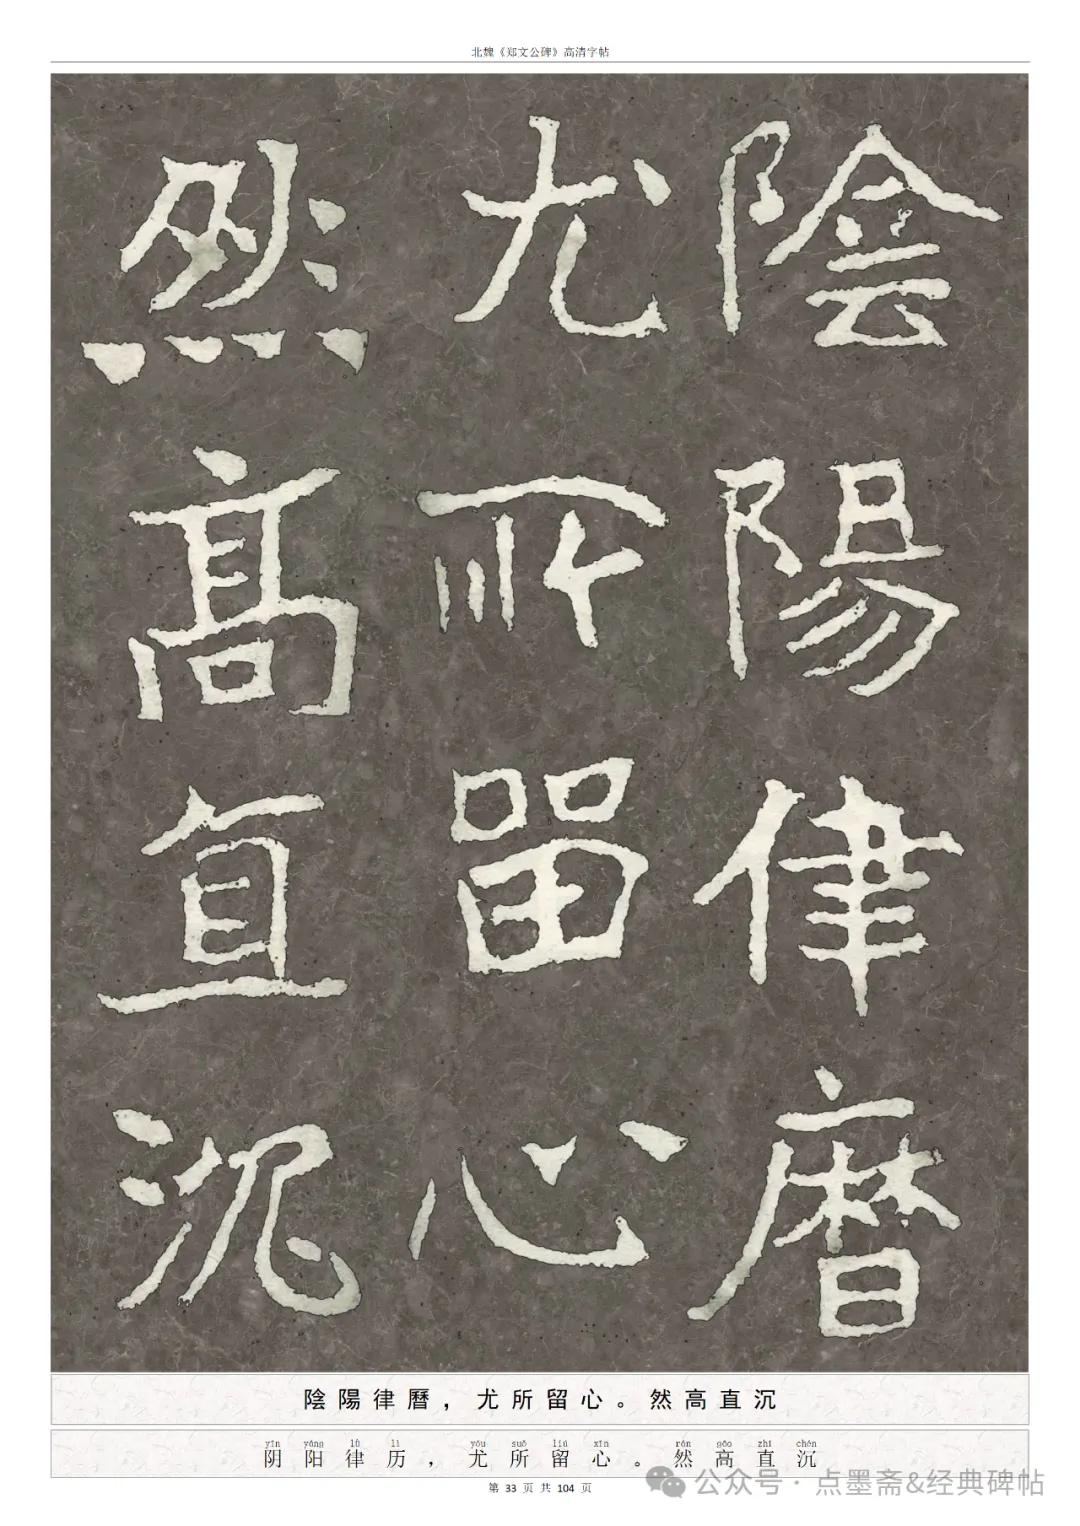 北魏《郑文公碑》高清字帖
陰陽律曆
尤所留心
然高直沉
陰陽律曆，尤所留心。然高直沉
yīn yáng lǜ lì yóu suǒ liú xīn rán gāo zhí chén
阴阳律历，尤所留心。然高直沉
第 33 页 共 104 页
公众号 · 点墨斋&经典碑帖